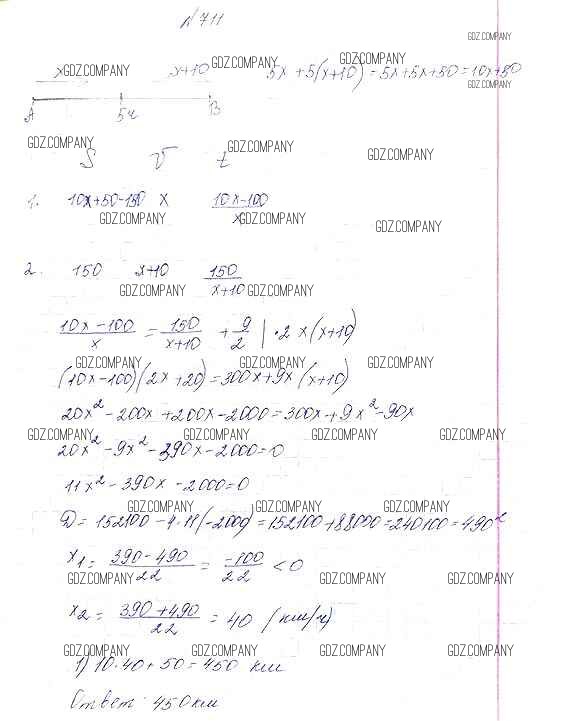 №711
GDZ.COMPANY
x GDZ.COMPANY x+10 GDZ.COMPANY 5x+5(x+10)=5x+5x+50=10x+50 GDZ.COMPANY
GDZ.COMPANY
A 5ч B
GDZ.COMPANY GDZ.COMPANY GDZ.COMPANY
S V t
1. 10x+50-150 x 10x-100/x
GDZ.COMPANY GDZ.COMPANY GDZ.COMPANY
2. 150 x+10 150/x+10
GDZ.COMPANY GDZ.COMPANY
10x-100/x = 150/x+10 + 9/2 | ·2x(x+10)
GDZ.COMPANY GDZ.COMPANY GDZ.COMPANY
(10x-100)(2x+20)=300x+9x(x+10)
20x²-200x+200x-2000=300x+9x²-90x
GDZ.COMPANY GDZ.COMPANY GDZ.COMPANY GDZ.COMPANY
20x²-9x²-390x-2000=0
11x²-390x-2000=0
GDZ.COMPANY GDZ.COMPANY GDZ.COMPANY
D=152100-4·11(-2000)=152100+88000=240100=490²
x₁=390-490/22=-100/22<0
GDZ.COMPANY GDZ.COMPANY GDZ.COMPANY
x₂=390+490/22=40 (км/ч)
GDZ.COMPANY GDZ.COMPANY GDZ.COMPANY GDZ.COMPANY
1) 10·40+50=450 км
Ответ: 450км